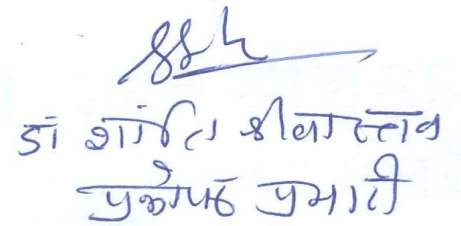 डॉ शांति श्रीवास्तव
प्रकोष्ठ प्रभारी